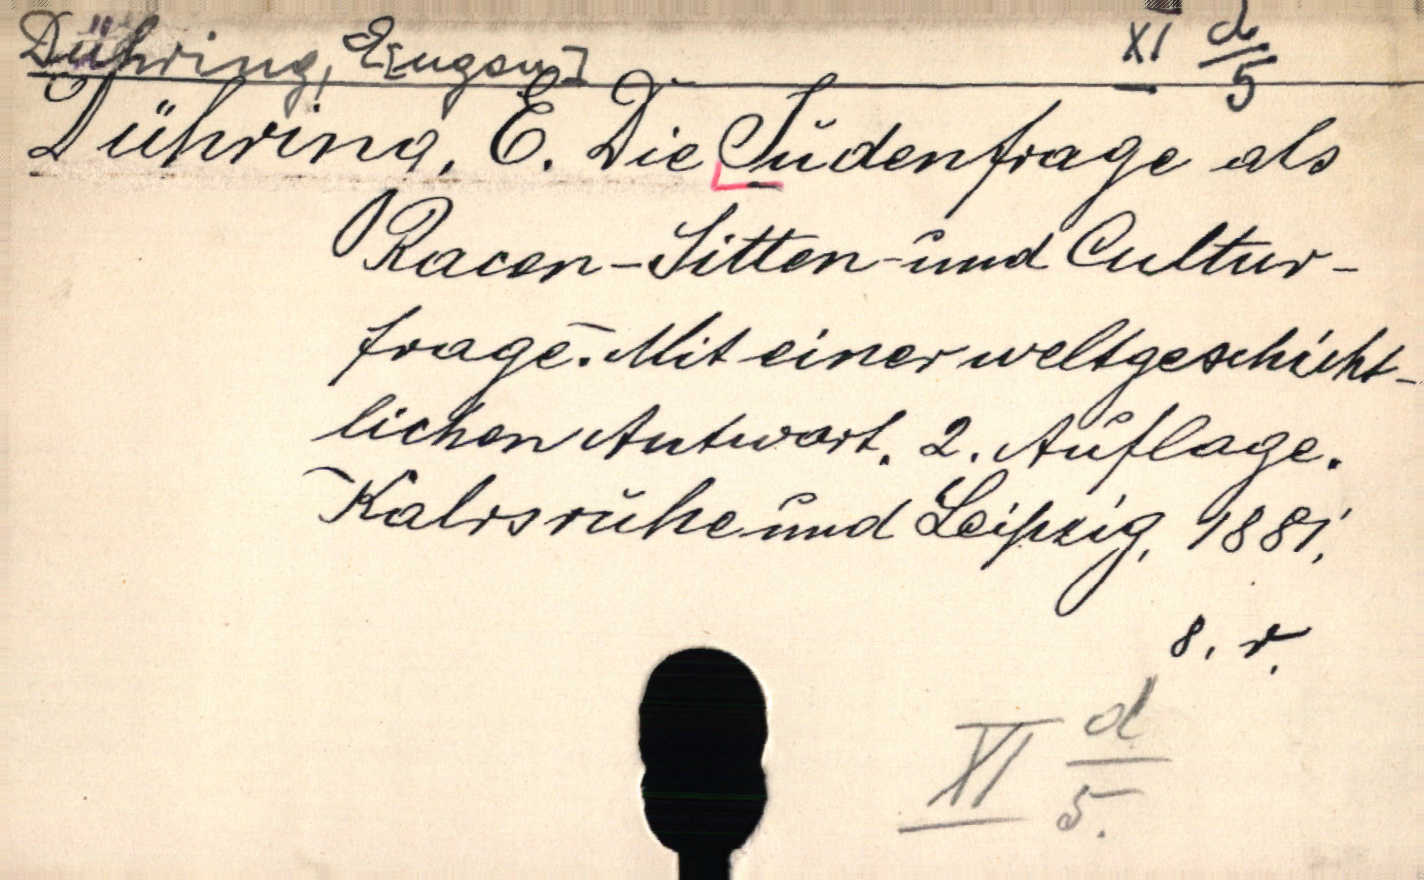 Dühring, E[ugen] XI d/5
Dühring, E. Die Judenfrage als
Racen-Sitten-und Cultur-
frage. Mit einer weltgeschicht-
lichen Antwort. 2. Auflage.
Kalrsruhe und Leipzig, 1881,
8. r.
XI d/5.